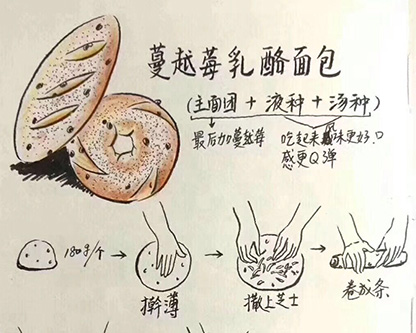 蔓越莓乳酪面包
(主面团 + 液种 + 汤种)
最后加蔓越莓
吃起来风味更好,口
感更Q弹
180g/个
擀薄
撒上芝士
卷成条